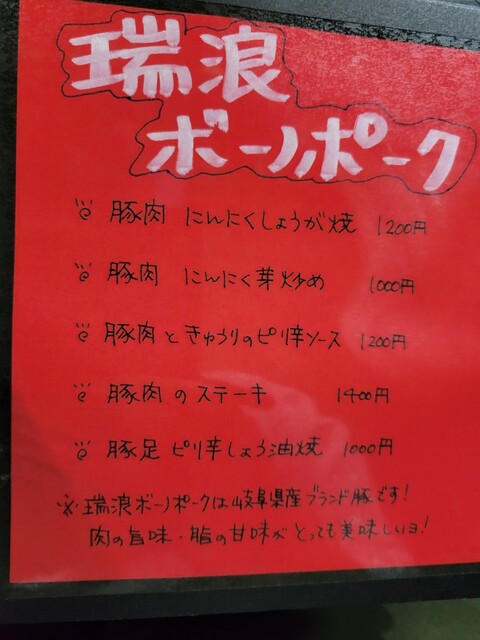 瑞浪
ボーノポーク
豚肉 にんにくしょうが焼 1200円
豚肉 にんにく芽炒め 1000円
豚肉ときゅうりのピリ辛ソース 1200円
豚肉のステーキ 1400円
豚足 ピリ辛しょう油焼 1000円
※瑞浪ボーノポークは岐阜県産ブランド豚です!
肉の旨味・脂の甘味がとっても美味しいヨ!